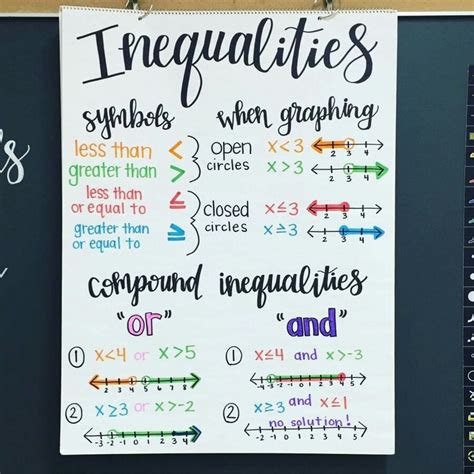 Inequalities
symbols
less than <
greater than >
less than or equal to ≤
greater than or equal to ≥
when graphing
open circles
x<3
2 3 4
x>3
2 3 4
closed circles
x≤3
2 3 4
x≥3
2 3 4
compound inequalities
"or"
① x<4 or x>5
② x≥3 or x>-2
-3 -2 -1 0 1 2 3 4
"and"
① x≤4 and x>-3
-3 -2 -1 0 1 2 3 4 5
② x≥3 and x≤1
no solution!
-2 -1 0 1 2 3 4 5